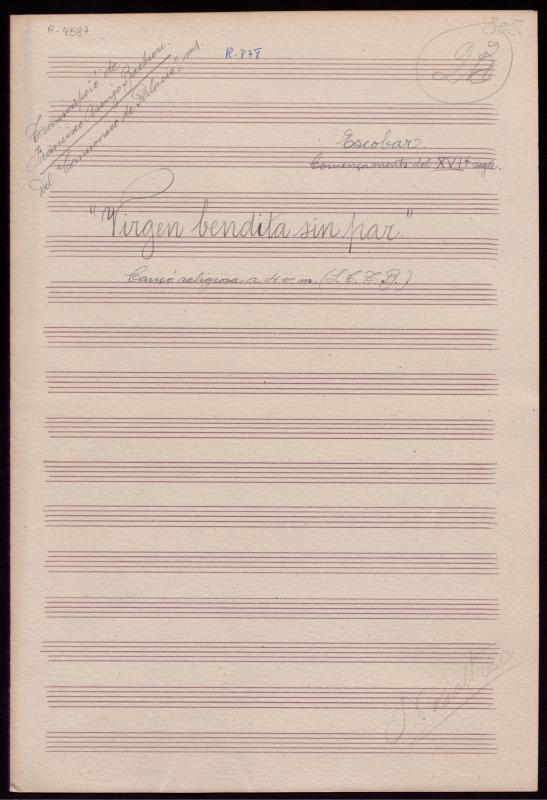 R-4587
R-878
305.
Transcripció de
Francisco Asenjo Barbieri.
Del "Cancionero de Palacio," ms.
Escobar.
Començaments del XVIè segle.
"Virgen bendita sin par"
Cançó religiosa a 4 v. m. (S. C. T. B.)